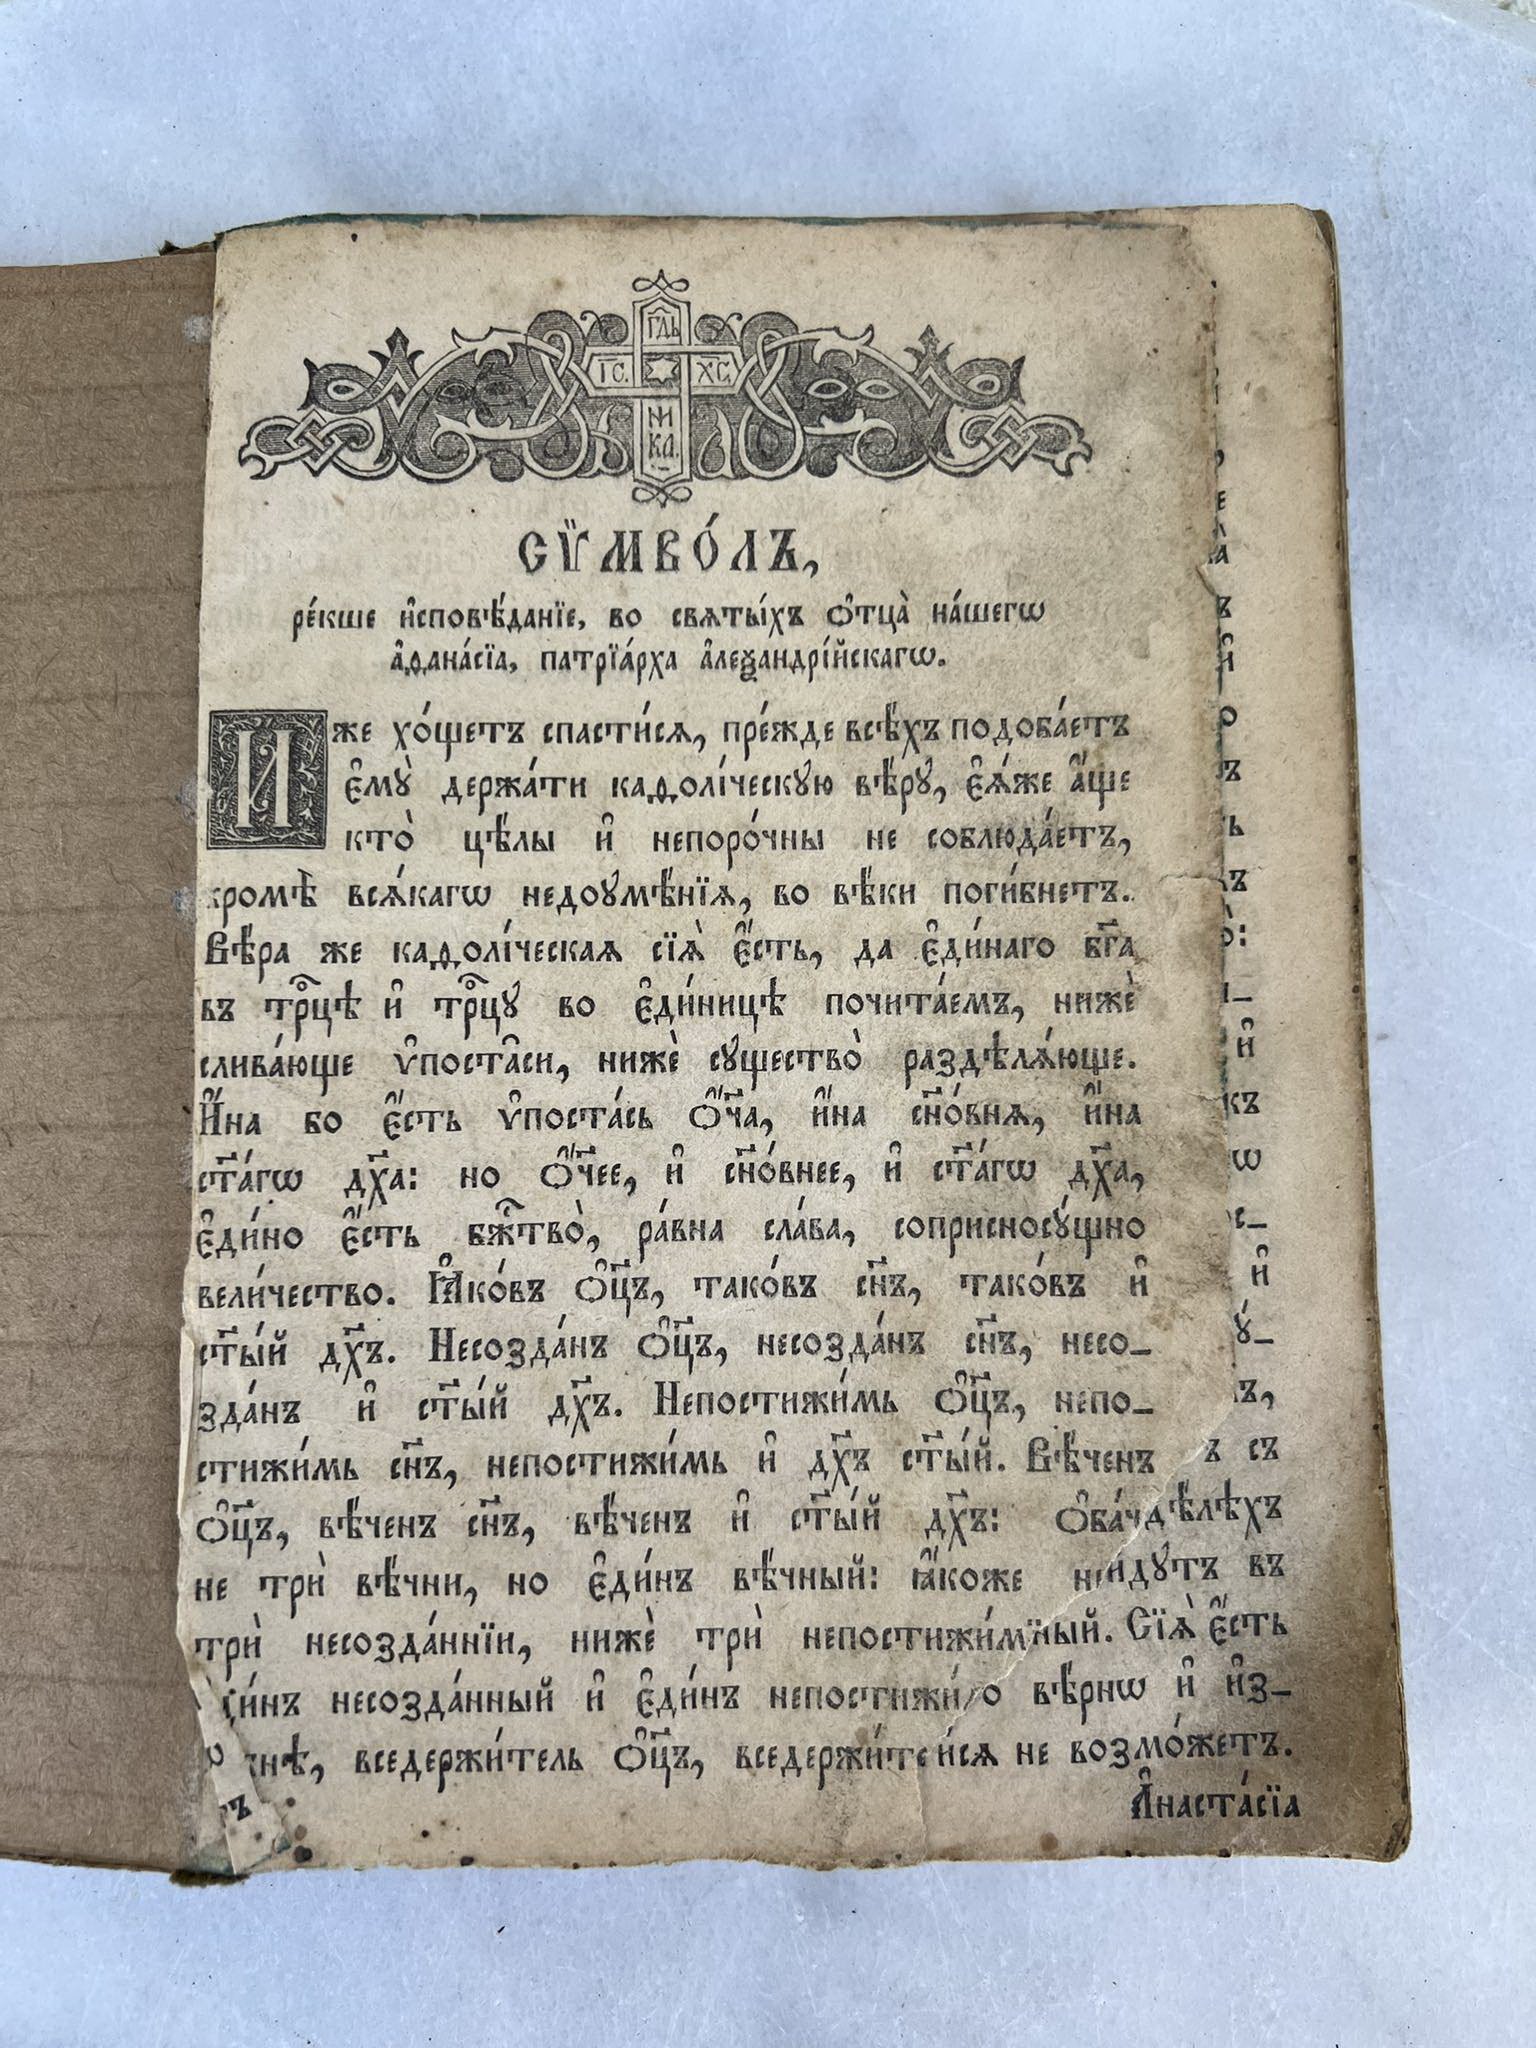 ГДЬ
ІС. ХС.
НИ
КА.
СѴ́МВО́ЛЪ,
ре́кше и҆сповѣ́данїе, во святы́хъ ѻ҆тца̀ на́шегѡ
а҆ѳана́сїа, патрїа́рха а҆леѯандрі́йскагѡ.
И́же хо́щетъ спасти́ся, пре́жде всѣ́хъ подоба́етъ
є҆мꙋ̀ держа́ти каѳолі́ческую вѣ́рꙋ, є҆ѧ́же а҆́ще
кто̀ цѣ́лы и҆ непоро́чны не соблюда́етъ,
кромѣ̀ всѧ́кагѡ недоумѣ́нїѧ, во вѣ́ки поги́бнетъ.
Вѣ́ра же каѳолі́ческаѧ сїѧ̀ є҆́сть, да є҆ди́наго бг҃а
въ трⷪ҇цѣ и҆ трⷪ҇цꙋ во є҆ди́ницѣ почита́емъ, нижѐ
слива́юще ѵ҆поста̑си, нижѐ сꙋщество̀ раздѣлѧ́юще.
И҆́на бо є҆́сть ѵ҆поста́сь ѻ҆́ч҃а, и҆́на сн҃о́внѧ, и҆́на
ст҃а́гѡ дх҃а: но ѻ҆́ч҃ее, и҆ сн҃о́внее, и҆ ст҃а́гѡ дх҃а,
є҆ди́но є҆́сть бж҃тво̀, ра́вна сла́ва, соприсносꙋ́щно
вели́чество. Ꙗ҆ко́въ ѻ҆ц҃ъ, тако́въ сн҃ъ, тако́въ и҆
ст҃ы́й дх҃ъ. Несозда́нъ ѻ҆ц҃ъ, несозда́нъ сн҃ъ, несо-
зда́нъ и҆ ст҃ы́й дх҃ъ. Непостижи́мь ѻ҆ц҃ъ, непо-
стижи́мь сн҃ъ, непостижи́мь и҆ дх҃ъ ст҃ы́й. Вѣ́ченъ ъ съ
ѻ҆ц҃ъ, вѣ́ченъ сн҃ъ, вѣ́ченъ и҆ ст҃ы́й дх҃ъ: ѻ҆ба́ч дѣ́лѣхъ
не трѝ вѣ́чни, но є҆ди́нъ вѣ́чный: ꙗ҆́коже н идꙋтъ въ
трѝ несозда́ннїи, нижѐ трѝ непостижи́м ный. Сїѧ̀ є҆́сть
ди́нъ несозда́нный и҆ є҆ди́нъ непостижи́ о вѣ́рнѡ и҆ и҆з-
нѣ, вседержи́тель ѻ҆ц҃ъ, вседержи́те и́сѧ не возмо́жетъ.
А҆наста́сїа